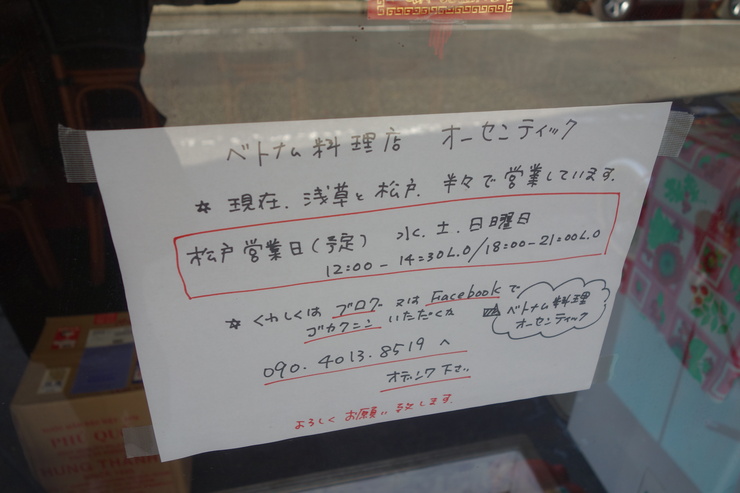 ベトナム料理店 オーセンティック
☆ 現在、浅草と松戸、半々で営業しています。
松戸営業日(予定) 水、土、日曜日
12:00 - 14:30L.O/18:00-21:00L.O
☆ くわしくは ブログ 又は Facebookで
ゴカクニン いただくか
ベトナム料理
オーセンティック
090.4013.8519 へ
オデンワ下さい
よろしくお願い致します。
PHU QU
HUNG THANH